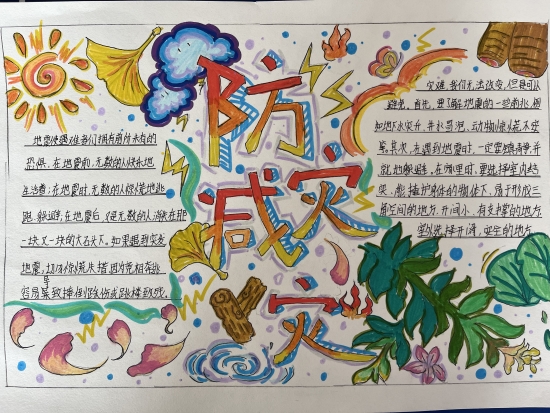 防
灾
减
灾
地震使得我们拥有前所未有的
恐惧,在地震前,无数的人快乐地
生活着;在地震时,无数的人惊慌地逃
跑、躲避;在地震后,
一块又一块的大石头下。如果遇到突发
地震,切勿惊慌失措,因为荒相
容易导致摔倒跌伤或跳楼致死。
灾难,我们无法改变,但是可以
避免。首先,要了解地震的一些前兆,例
如地下水突升、井水冒泡、动物惊慌不安
等。其次,在遇到地震时,一定要保持冷静并
就地躲避。在哪里时,要选择室内结
实、能掩护身体的物体下、易于形成三
角空间的地方、开间小、有支撑的地方
室外选择开阔、安全的地方